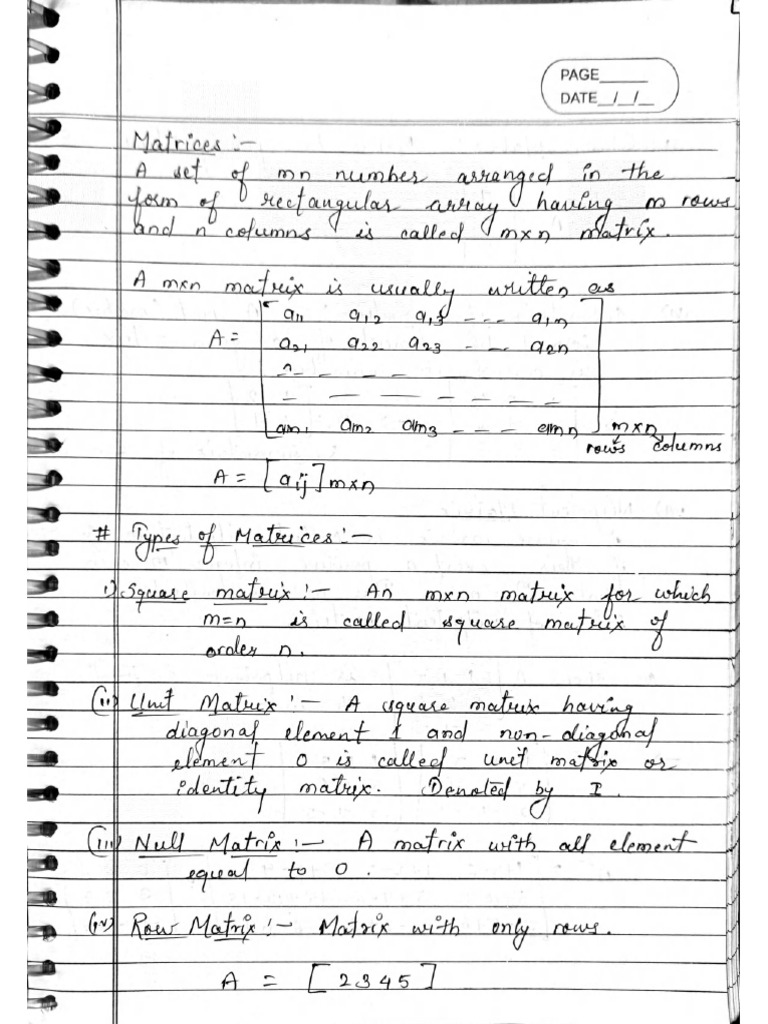 PAGE______
DATE__/__/__
Matrices :-
A set of mn number arranged in the
form of rectangular array having m rows
and n columns is called m×n matrix.
A m×n matrix is usually written as
A = [ a11 a12 a13 --- a1n
a21 a22 a23 -- -- a2n
- - - - - -
- - - - - - -
am1 am2 am3 --- amn ] m×n
rows columns
A = [aij]m×n
# Types of Matrices :-
i) Square matrix :- An m×n matrix for which
m=n is called square matrix of
order n.
(ii) Unit Matrix :- A square matrix having
diagonal element 1 and non-diagonal
element 0 is called unit matrix or
identity matrix. Denoted by I.
(iii) Null Matrix :- A matrix with all element
equal to 0.
(iv) Row Matrix :- Matrix with only rows.
A = [2345]